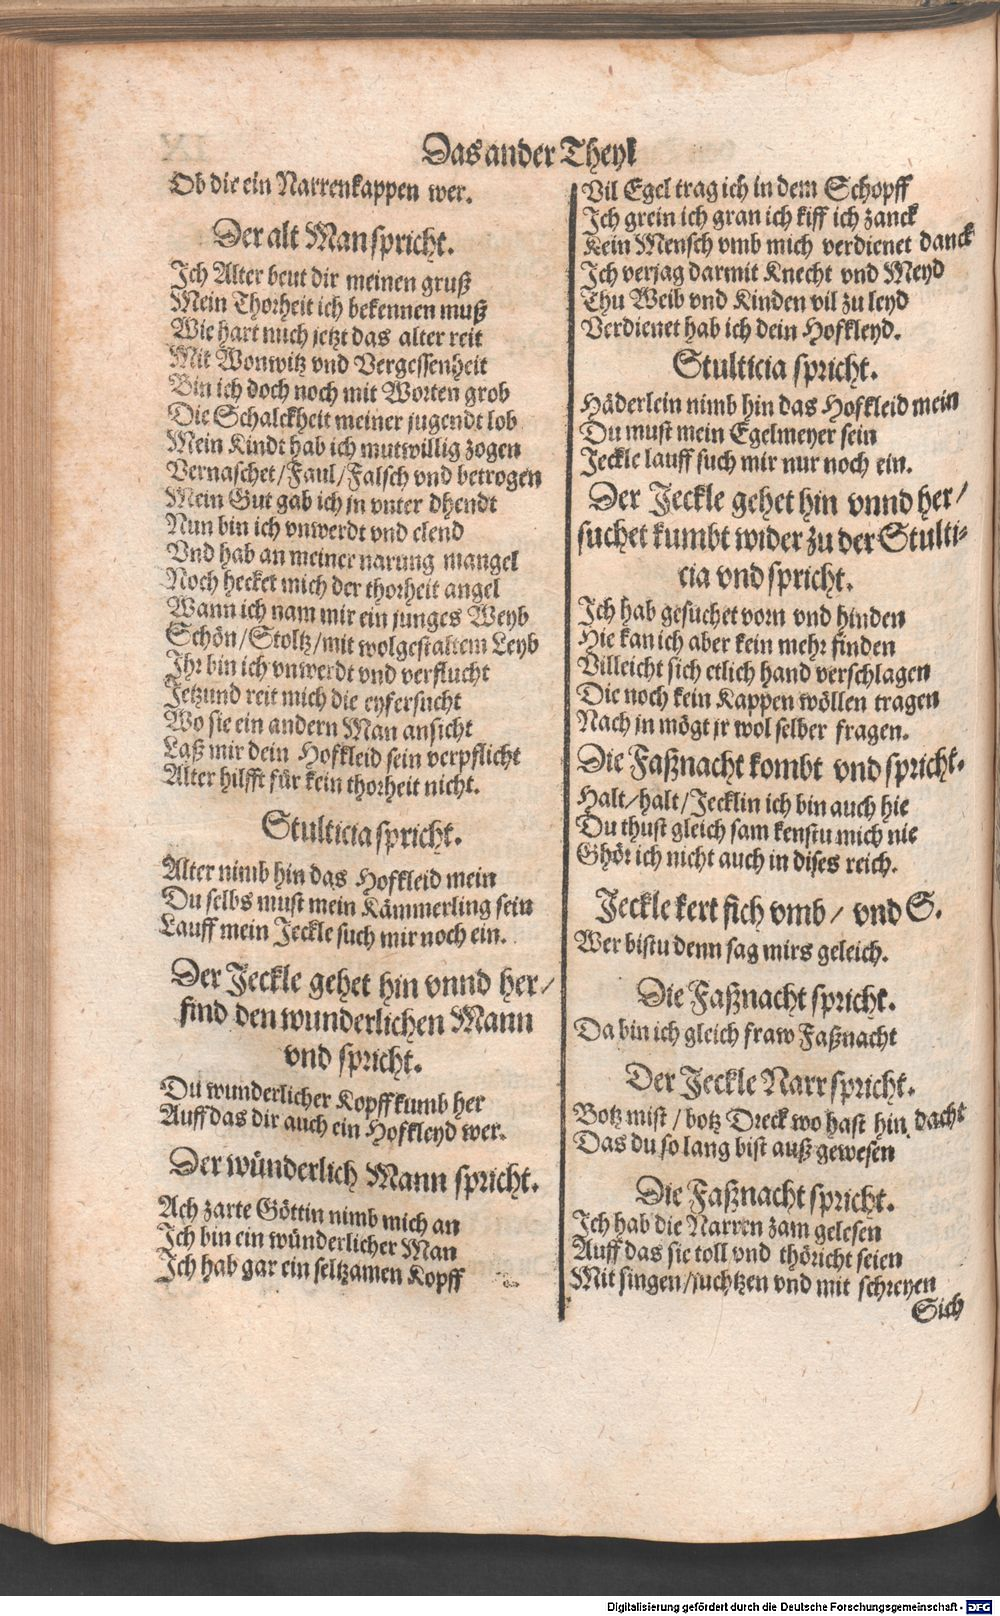 Das ander Theyl
Ob die ein Narrenkappen wer.
Der alt Man spricht.
Ich Alter beut dir meinen gruß
Mein Thorheit ich bekennen muß
Wie hart mich jetzt das alter reit
Mit Wonwitz vnd Vergessenheit
Bin ich doch noch mit Worten grob
Die Schalckheit meiner jugendt lob
Mein Kindt hab ich mutwillig zogen
Vernaschet/Faul/Falsch vnd betrogen
Mein Gut gab ich jn vnter dhendt
Nun bin ich vnwerdt vnd elend
Vnd hab an meiner narung mangel
Noch hecket mich der thorheit angel
Wann ich nam mir ein junges Weyb
Schön/Stoltz/mit wolgestaltem Leyb
Ihr bin ich vnwerdt vnd verflucht
Jetzund reit mich die eyfersucht
Wo sie ein andern Man ansicht
Laß mir dein Hofkleid sein verpflicht
Alter hilfft für kein thorheit nicht.
Stulticia spricht.
Alter nimb hin das Hofkleid mein
Du selbs must mein Kämmerling sein
Lauff mein Jeckle such mir noch ein.
Der Jeckle gehet hin vnnd her/
find den wunderlichen Mann
vnd spricht.
Du wunderlicher Kopff kumb her
Auff das dir auch ein Hofkleyd wer.
Der wünderlich Mann spricht.
Ach zarte Göttin nimb mich an
Ich bin ein wünderlicher Man
Ich hab gar ein seltzamen Kopff
Vil Egel trag ich in dem Schopff
Ich grein ich gran ich kiff ich zanck
Kein Mensch vmb mich verdienet danck
Ich verjag darmit Knecht vnd Meyd
Thu Weib vnd Kinden vil zu leyd
Verdienet hab ich dein Hofkleyd.
Stulticia spricht.
Häderlein nimb hin das Hofkleid mein
Du must mein Egelmeyer sein
Jeckle lauff such mir nur noch ein.
Der Jeckle gehet hin vnnd her/
suchet kumbt wider zu der Stulti-
cia vnd spricht.
Ich hab gesuchet vorn vnd hinden
Hie kan ich aber kein mehr finden
Villeicht sich etlich hand verschlagen
Die noch kein Kappen wöllen tragen
Nach jn mögt jr wol selber fragen.
Die Faßnacht kombt vnd spricht.
Halt/halt/Jecklin ich bin auch hie
Du thust gleich sam kenstu mich nie
Ghör ich nicht auch in dises reich.
Jeckle kert sich vmb/ vnd S.
Wer bistu denn sag mirs geleich.
Die Faßnacht spricht.
Da bin ich gleich fraw Faßnacht
Der Jeckle Narr spricht.
Botz mist/botz Dreck wo hast hin dacht
Das du so lang bist auß gewesen
Die Faßnacht spricht.
Ich hab die Narren zam gelesen
Auff das sie toll vnd thöricht seien
Mit singen/juchtzen vnd mit schreyen
Sich
Digitalisierung gefördert durch die Deutsche Forschungsgemeinschaft - DFG